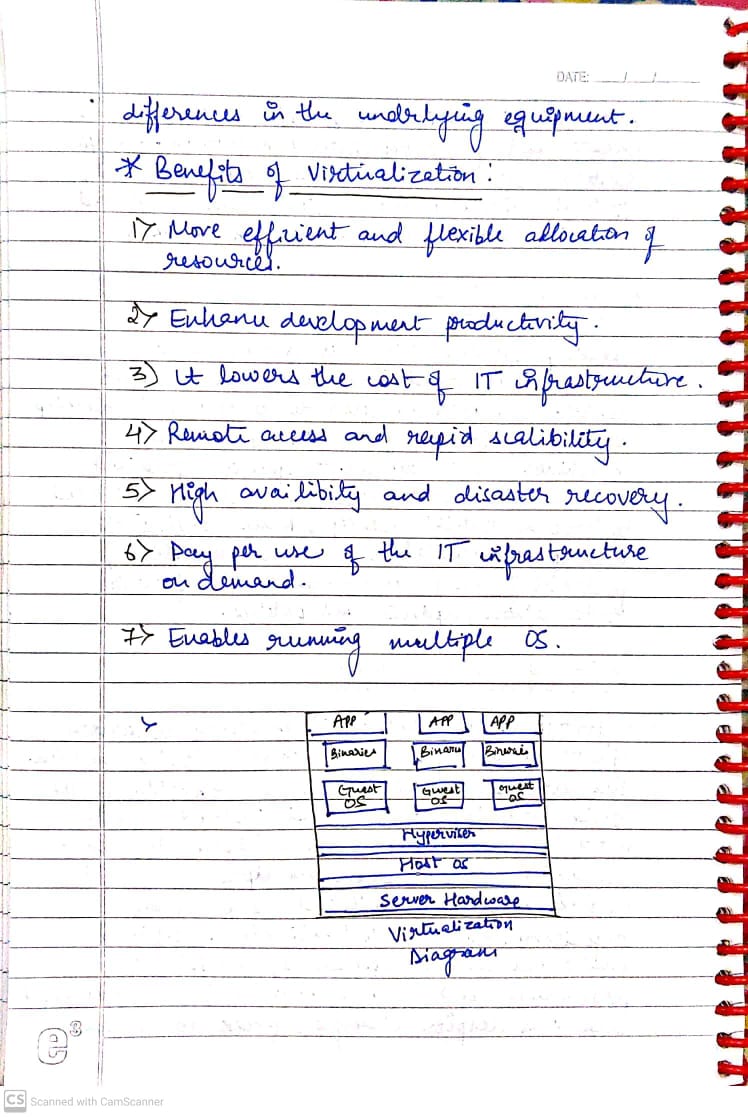 DATE: __/__/__
differences in the underlying equipment.
* Benefits of Virtualization :
1> More efficient and flexible allocation of
resources.
2> Enhance development productivity.
3) It lowers the cost of IT infrastructure.
4> Remote access and rapid scalibility.
5> High availibity and disaster recovery.
6> Pay per use of the IT infrastructure
on demand.
7> Enables running multiple OS.
APP APP APP
Binaries Binaries Binaries
Guest Guest Guest
OS OS OS
Hyperviser
Host OS
Server Hardware
Virtualization
Diagram
e3
CS Scanned with CamScanner